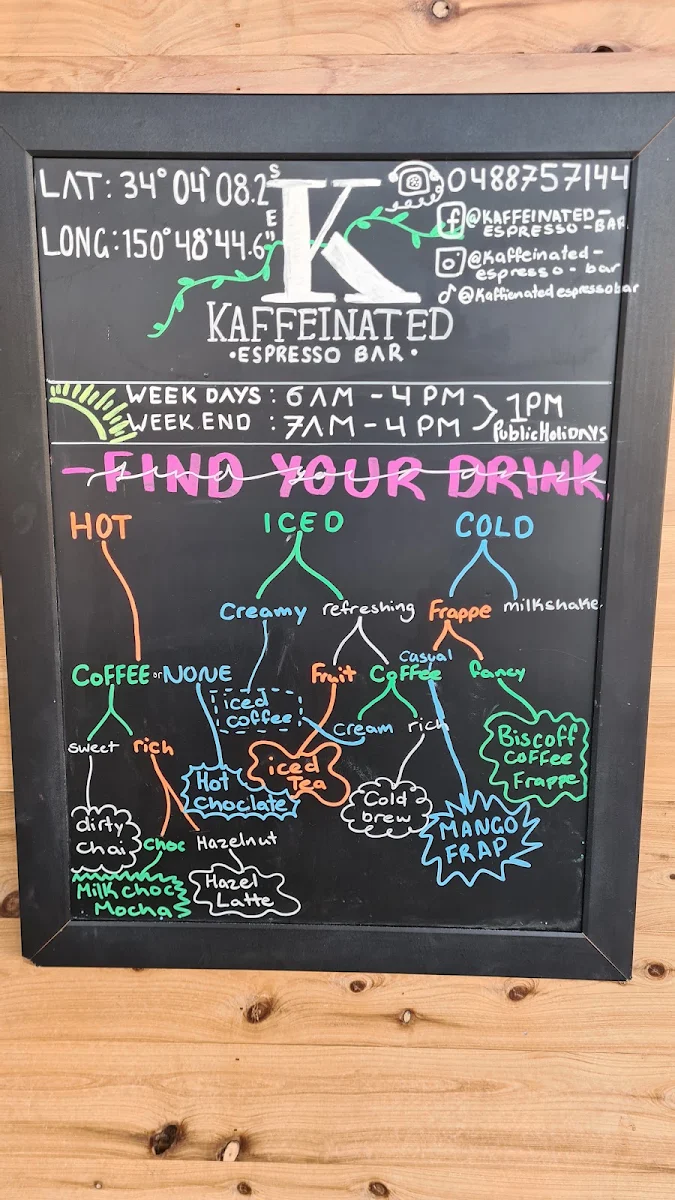 LAT: 34° 04' 08.2" S
LONG: 150° 48' 44.6" E
K
KAFFEINATED
• ESPRESSO BAR •
0488757144
@KAFFEINATED-
ESPRESSO-BAR
@kaffeinated-
espresso-bar
@Kaffienatedespressobar
WEEK DAYS : 6AM - 4PM
WEEK.END : 7AM - 4PM
1PM
Public HoliDAYS
-FIND YOUR DRINK
HOT ICED COLD
Creamy refreshing Frappe milkshake.
COFFEE or NONE
iced
coffee
Fruit Coffee
Casual fancy
sweet rich
Cream rich
Biscoff
Coffee
Frappe
Hot
Choclate
iced
Tea
Cold
brew
MANGO
FRAP
dirty
chai
choc Hazelnut
Milk choc
Mocha
Hazel
Latte